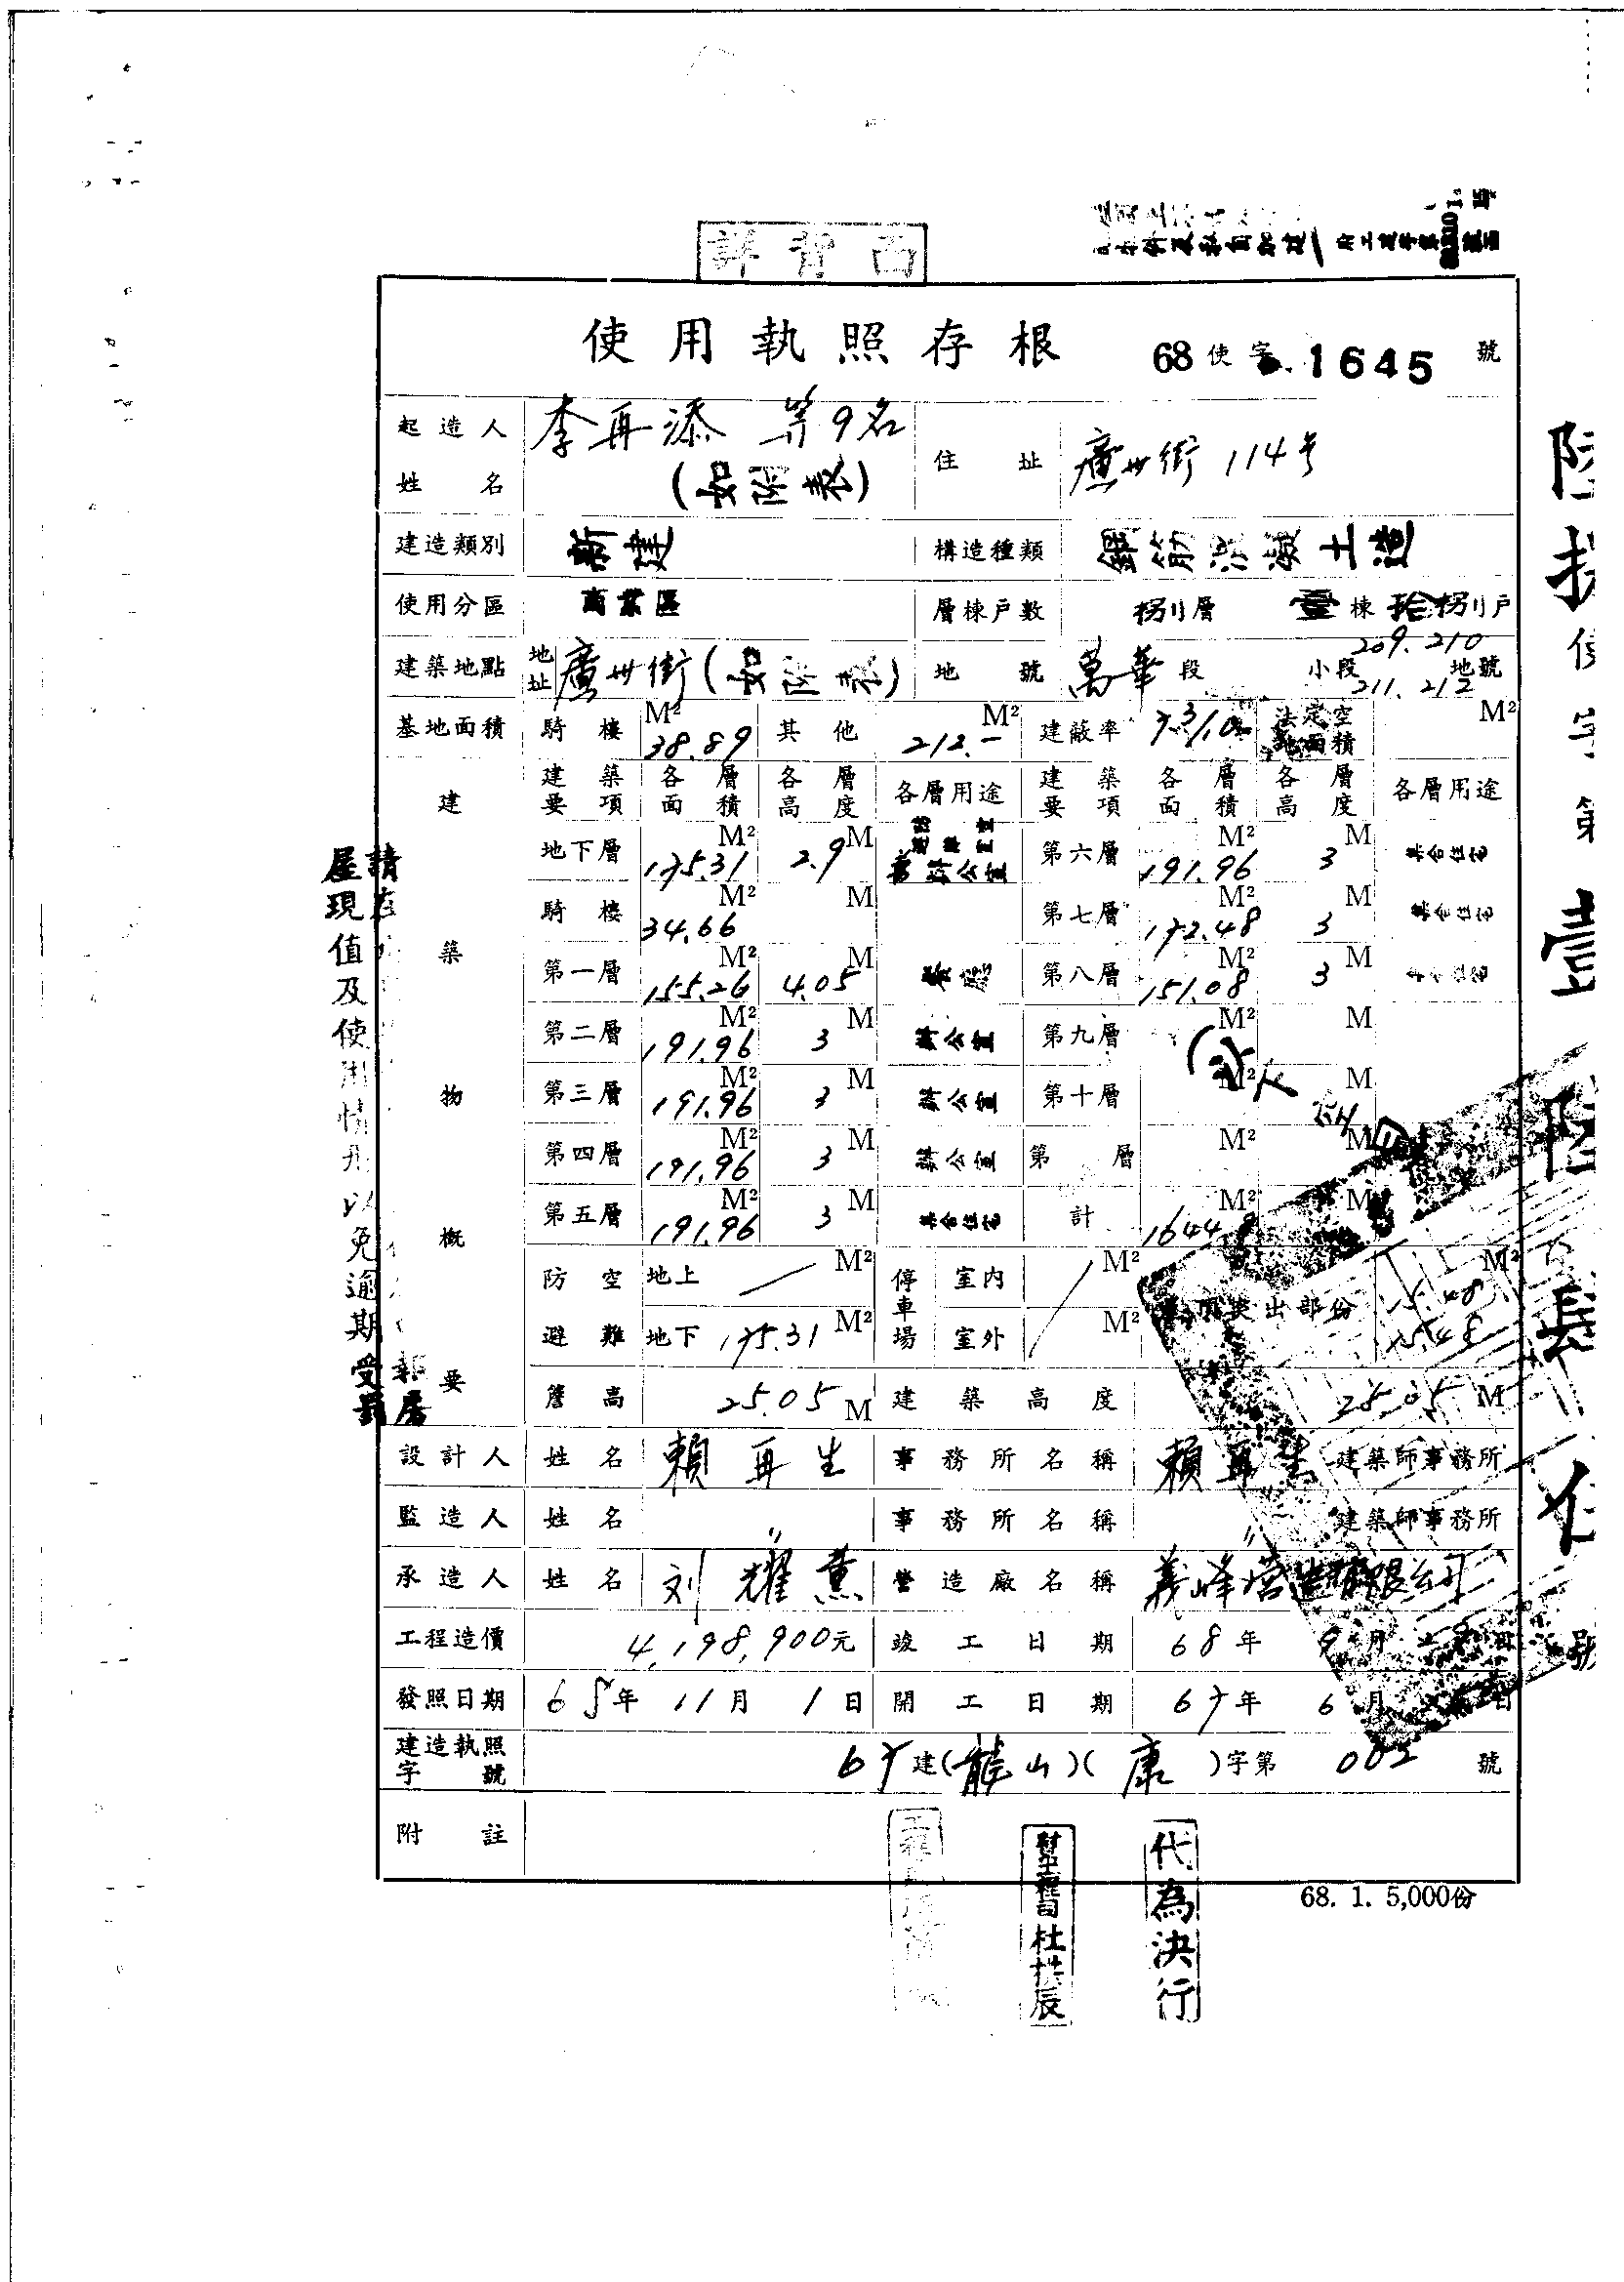 詳背面
使用執照存根 68使字 1645 號
起造人姓名 李再添 等9名 (如附表) 住址 廣州街 114号
建造類別 新建 構造種類 鋼筋混凝土造
使用分區 商業區 層棟戶數 捌層 壹棟 拾捌戶
建築地點 地址 廣州街(如附表) 地號 萬華段 小段 209.210 211.212 地號
基地面積 騎樓 38.89 M² 其他 212.- M² 建蔽率 法定空地面積 M²
建築物概要
建築要項 各層面積 各層高度 各層用途 建築要項 各層面積 各層高度 各層用途
地下層 175.31 M² 2.9 M 辦公室 第六層 191.96 M² 3 M 集合住宅
騎樓 34.66 M² M 第七層 172.48 M² 3 M 集合住宅
第一層 155.26 M² 4.05 M 第八層 151.08 M² 3 M 集合住宅
第二層 191.96 M² 3 M 辦公室 第九層 M² M
第三層 191.96 M² 3 M 辦公室 第十層 M² M
第四層 191.96 M² 3 M 辦公室 第 層 M² M
第五層 191.96 M² 3 M 集合住宅 計 M² M
防空避難 地上 M² 停車場 室內 M² 突出部份 15.48 M²
地下 175.31 M² 室外 M² 15.48
簷高 25.05 M 建築高度 25.05 M
設計人 姓名 賴再生 事務所名稱 賴再生 建築師事務所
監造人 姓名 〃 事務所名稱 〃 建築師事務所
承造人 姓名 刘耀薰 營造廠名稱 義峰营造有限公司
工程造價 4,198,900元 竣工日期 68年 9月 日
發照日期 68年 11月 1日 開工日期 67年 6月 日
建造執照字號 67建(龍山)(康)字第 002 號
附註
68. 1. 5,000份
代為決行
請
屋現值及使用情形以免逾期受罰